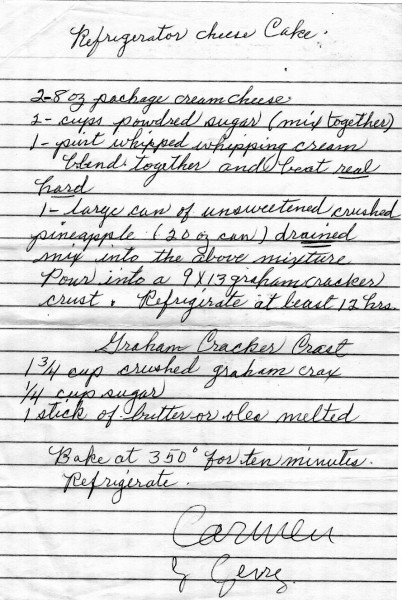 Refrigerator cheese Cake.
2-8 oz package cream cheese
2- cups powdred sugar (mix together)
1- pint whipped whipping cream
blend together and beat real
hard
1- large can of unsweetened crushed
pineapple (20 oz can) drained
mix into the above mixture
Pour into a 9X13 graham cracker
crust. Refrigirate at least 12 hrs.
Graham Cracker Crast
1 3/4 cup crushed graham crax
1/4 cup sugar
1 stick of butter or oleo melted
Bake at 350° for ten minutes.
Refrigirate.
Carmen
y Gerry